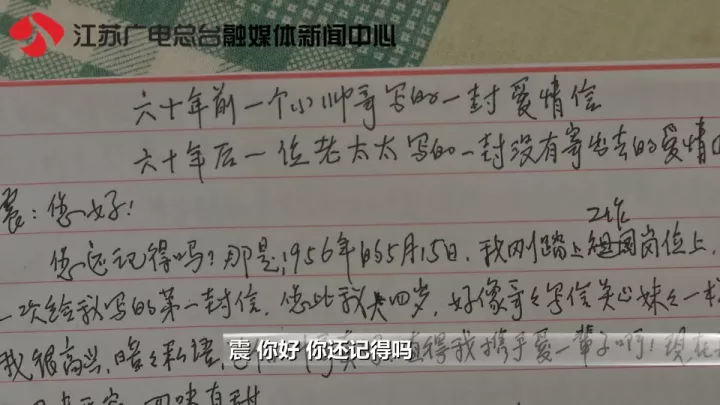 江苏广电总台融媒体新闻中心
六十年前一个小帅哥写的一封爱情信
六十年后一位老太太写的一封没有寄出去的爱情
震：您好！
工作
您还记得吗？那是，1956年的5月15日，我刚踏上岗位上，
一次给我写的第一封信，您比我大四岁，好像哥哥写信关心妹妹一样
我很高兴，暗暗私语，值得我携手爱一辈子啊！现在
震 你好 你还记得吗
回味有甜